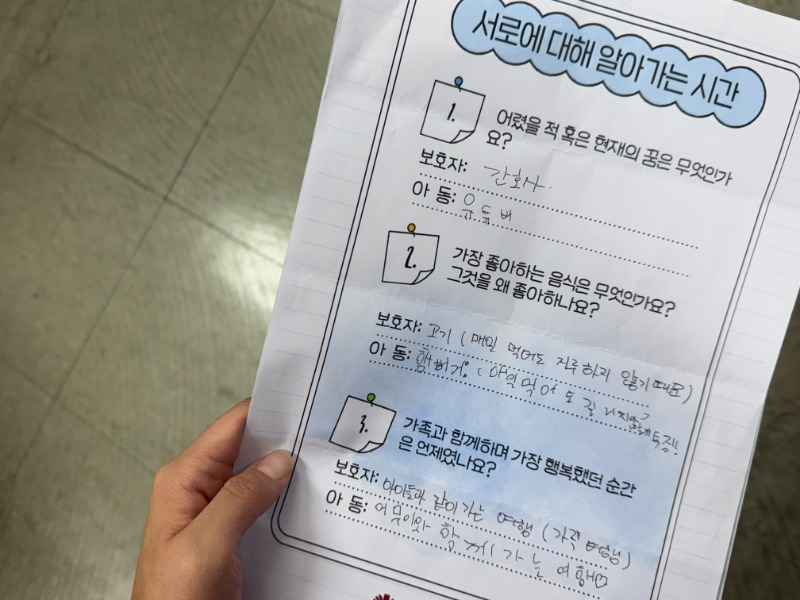 서로에 대해 알아가는 시간
1.
어렸을 적 혹은 현재의 꿈은 무엇인가
요?
보호자: 간호사
아 동: 유튜버
2.
가장 좋아하는 음식은 무엇인가요?
그것을 왜 좋아하나요?
보호자: 고기 (매일 먹어도 지루하지 않기 때문)
아 동: 햄버거. (매일 먹어도 질리지
3.
가족과 함께하며 가장 행복했던 순간
은 언제였나요?
보호자: 아이들과 같이 가는 여행 (가족 여행)
아 동: 함께 가는 여행